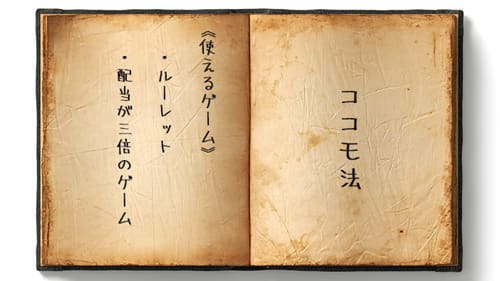 ココモ法
《使えるゲーム》
・ルーレット
・配当が三倍のゲーム